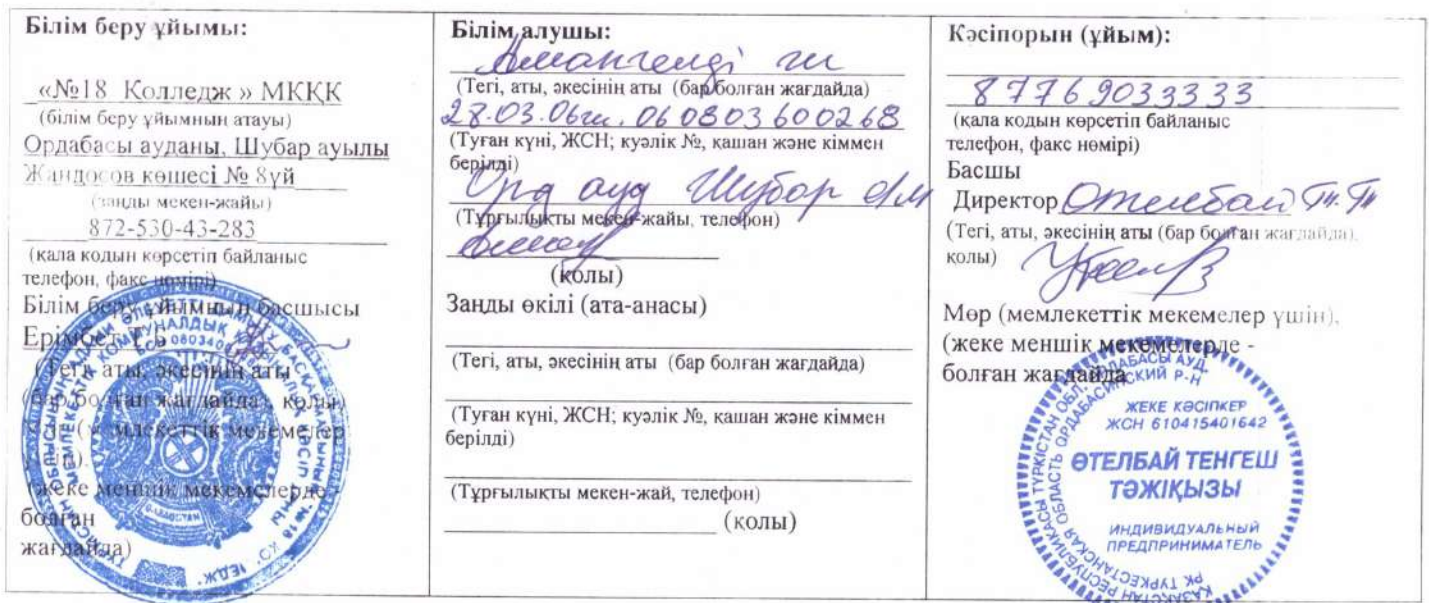 Білім беру ұйымы:
«№18 Колледж » МКҚК
(білім беру ұйымның атауы)
Ордабасы ауданы, Шубар ауылы
Жандосов көшесі № 8үй
(заңды мекен-жайы)
872-530-43-283
(қала кодын көрсетіп байланыс
телефон, факс нөмірі)
Білім беру ұйымның басшысы
Ерімбет Т.Б
(Тегі, аты, әкесінің аты
(бар болған жағдайда), қолы)
(мемлекеттік мекемелер
үшін).
(жеке меншік мекемелерде
болған
жағдайда)
Білім алушы:
Амангелді
(Тегі, аты, әкесінің аты (бар болған жағдайда)
28.03.06ж. 060803600268
(Туған күні, ЖСН; куәлік №, қашан және кіммен
берілді)
Орд ауд Шубар а/м
(Тұрғылықты мекен-жайы, телефон)
(қолы)
Заңды өкілі (ата-анасы)
(Тегі, аты, әкесінің аты (бар болған жағдайда)
(Туған күні, ЖСН; куәлік №, қашан және кіммен
берілді)
(Тұрғылықты мекен-жай, телефон)
(қолы)
Кәсіпорын (ұйым):
87769033333
(қала кодын көрсетіп байланыс
телефон, факс нөмірі)
Басшы
Директор Отелбай Т.Т
(Тегі, аты, әкесінің аты (бар болған жағдайда),
қолы)
Мөр (мемлекеттік мекемелер үшін),
(жеке меншік мекемелерде -
болған жағдайда
ЖЕКЕ КӘСІПКЕР
ЖСН 610415401642
ӨТЕЛБАЙ ТЕНГЕШ
ТӘЖІҚЫЗЫ
ИНДИВИДУАЛЬНЫЙ
ПРЕДПРИНИМАТЕЛЬ